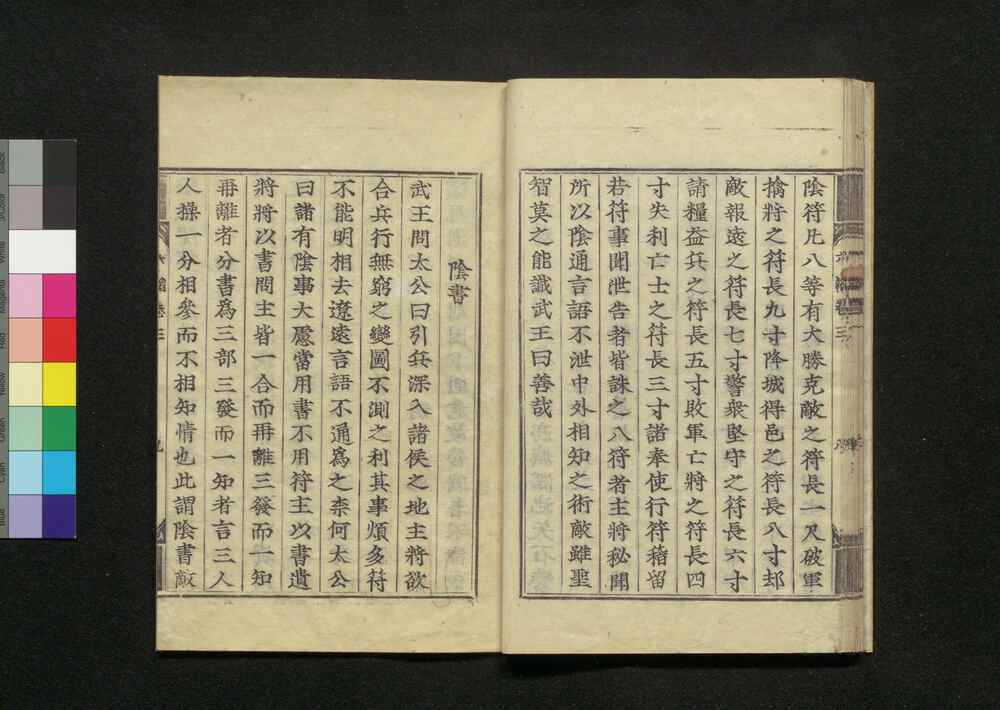 陰符凡八等有大勝克敵之符長一尺破軍
擒將之符長九寸降城得邑之符長八寸却
敵報遠之符長七寸警衆堅守之符長六寸
請糧益兵之符長五寸敗軍亡將之符長四
寸失利亡士之符長三寸諸奉使行符稽留
若符事聞泄告者皆誅之八符者主將秘聞
所以陰通言語不泄中外相知之術敵雖聖
智莫之能識武王曰善哉
陰書
武王問太公曰引兵深入諸侯之地主將欲
合兵行無窮之變圖不測之利其事煩多符
不能明相去遼遠言語不通爲之柰何太公
曰諸有陰事大慮當用書不用符主以書遺
將將以書問主皆一合而再離三發而一知
再離者分書爲三部三發而一知者言三人
人操一分相參而不相知情也此謂陰書敵
六韜卷三